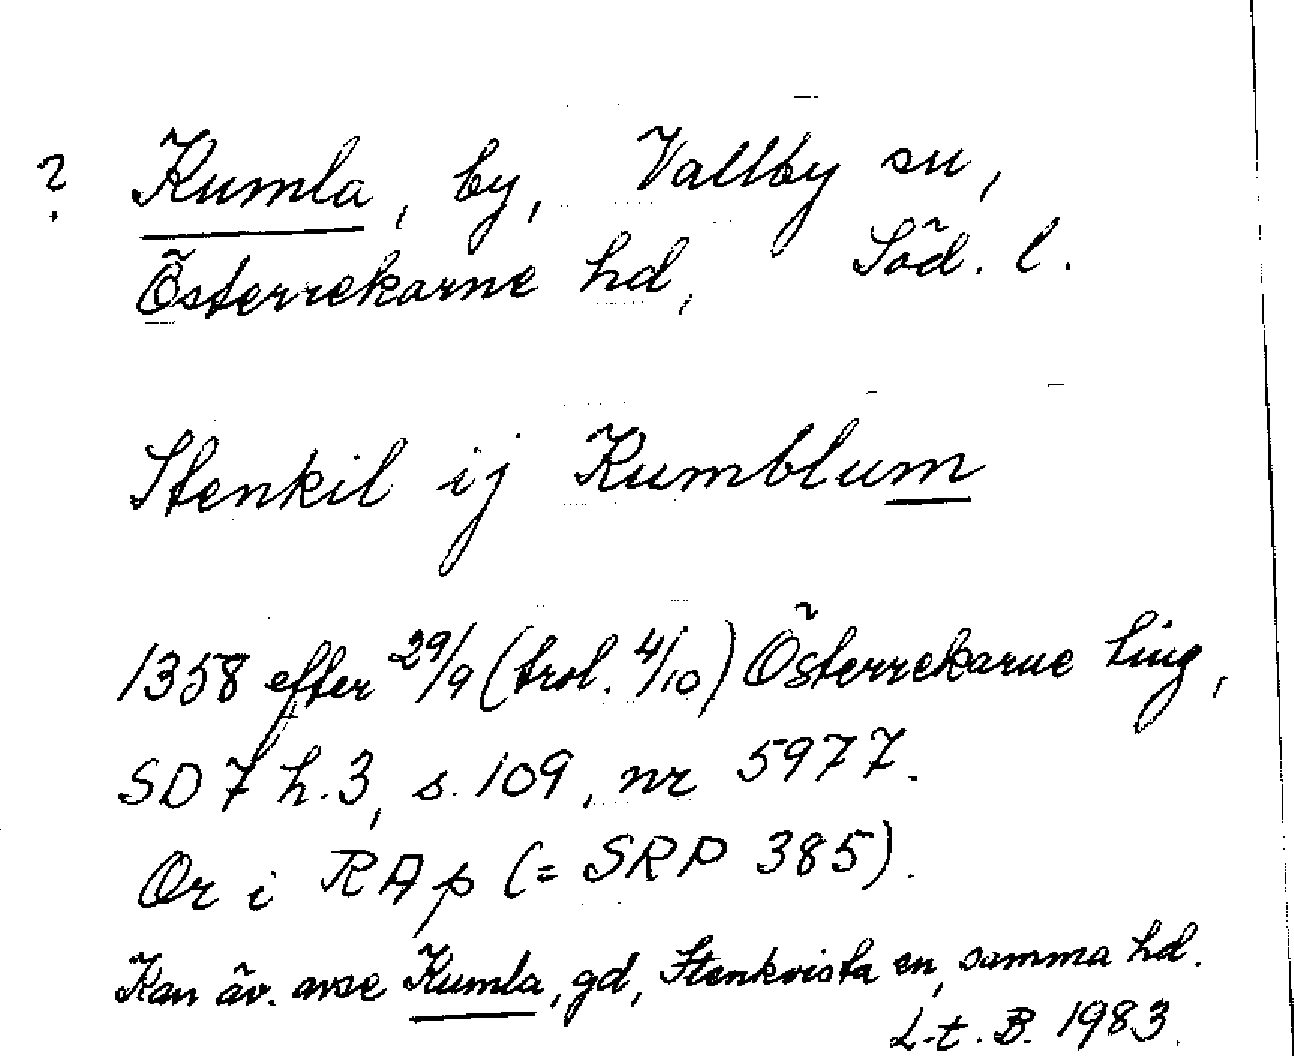 ? Kumla, by, Vallby sn,
Österrekarne hd, Söd. l.
Stenkil ij Kumblum
1358 efter 29/9 (trol. 4/10) Österrekarne ting,
SD 7 h. 3, s. 109, nr 5977.
Or i RAp (= SRP 385).
Kan äv. avse Kumla, gd, Stenkvista sn, samma hd.
L-t. B. 1983.